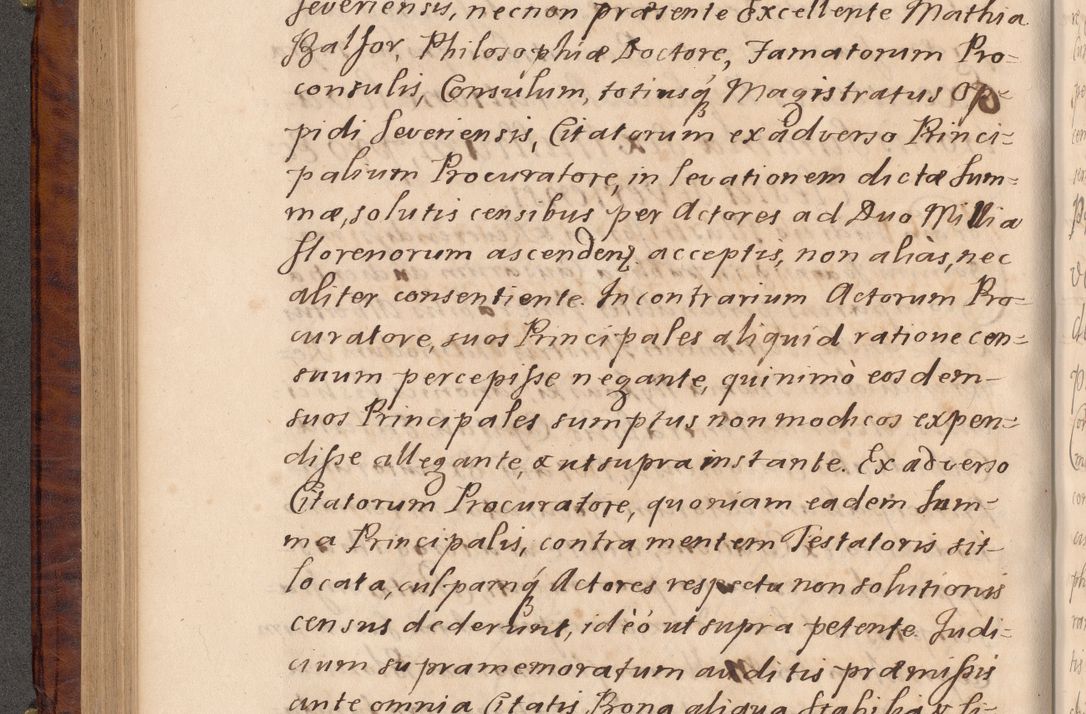 Severiensis, necnon præsente Excellente Mathia
Balsor, Philosophiæ Doctore, Famatorum Pro=
consulis, Consulum, totiusq́ Magistratus Op=
pidi Severiensis, Citatorum ex adverso Princi=
palium Procuratore, in levationem dictæ Sum=
mæ, solutis censibus per Actores ad Duo Millia
florenorum ascendenꝫ acceptis, non aliàs, nec
aliter consentiente. In contrarium Actorum Pro=
curatore, suos Principales aliquid ratione cen=
suum percepisse negante, quinimò eosdem
suos Principales sumptus non modicos expen=
disse allegante, & ut supra instante. Ex adverso
Citatorum Procuratore, quoniam eadem Sum=
ma Principalis, contra mentem Testatoris sit
locata, culpamq́ Actores respectu non solutionis
census dederunt, ideò ut supra petente. Judi=
cium supramemoratum auditis præmissis
ante omnia Citatis Bona aliqua Stabilia & li=